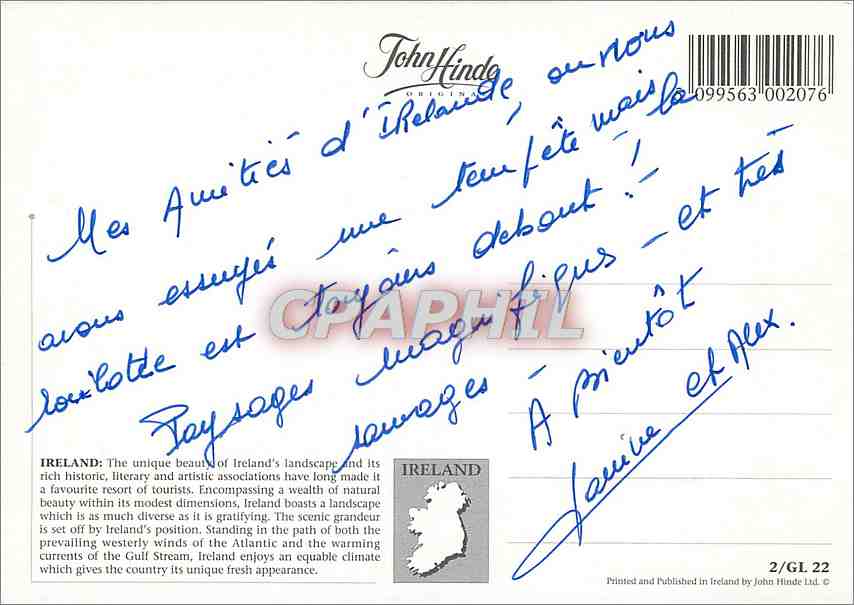 John Hinde
ORIGINAL
099563 002076
Mes Amitiés d'Irelande, où nous
avons essuyés une tempête mais la
roulotte est toujours debout !
Paysages magnifiques - et très
sauvages -
A Bientôt
Janine et Alex.
CPAPHIL
IRELAND: The unique beauty of Ireland's landscape and its
rich historic, literary and artistic associations have long made it
a favourite resort of tourists. Encompassing a wealth of natural
beauty within its modest dimensions, Ireland boasts a landscape
which is as much diverse as it is gratifying. The scenic grandeur
is set off by Ireland's position. Standing in the path of both the
prevailing westerly winds of the Atlantic and the warming
currents of the Gulf Stream, Ireland enjoys an equable climate
which gives the country its unique fresh appearance.
IRELAND
2/GL 22
Printed and Published in Ireland by John Hinde Ltd. ©